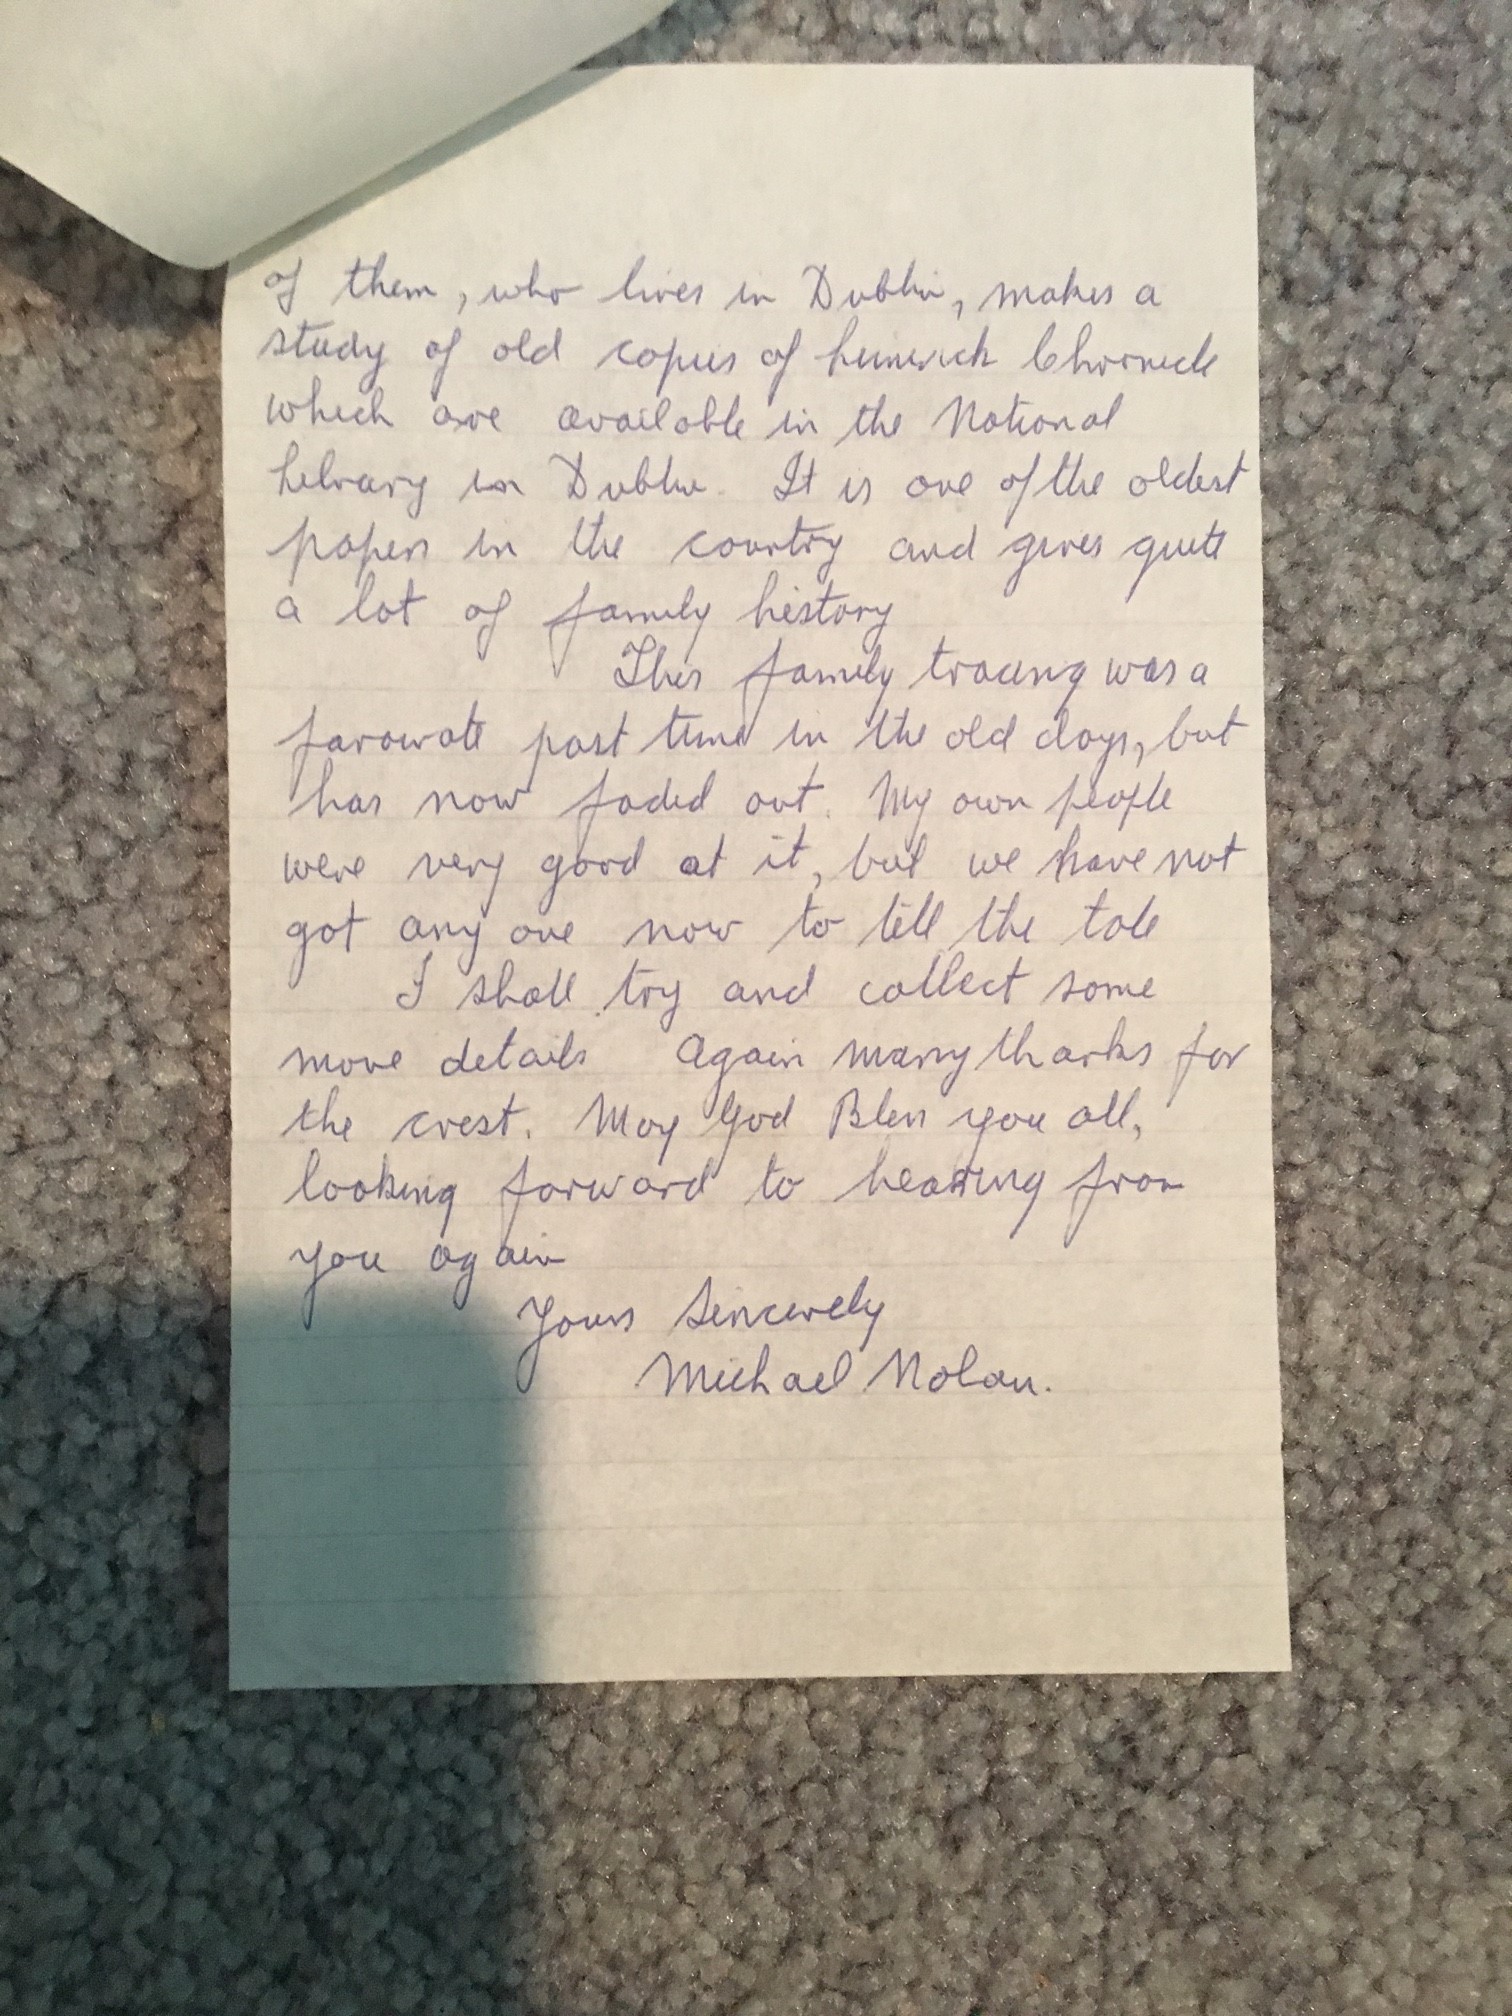 of them, who lives in Dublin, makes a
study of old copies of Limerick Chronicle
which are available in the National
Library in Dublin. It is one of the oldest
papers in the country and gives quite
a lot of family history
This family tracing was a
favourate past time in the old days, but
has now faded out. My own people
were very good at it, but we have not
got any one now to tell the tale
I shall try and collect some
more details Again many thanks for
the crest. May God Bless you all,
looking forward to hearing from
you again
Yours Sincerely
Michael Nolan.